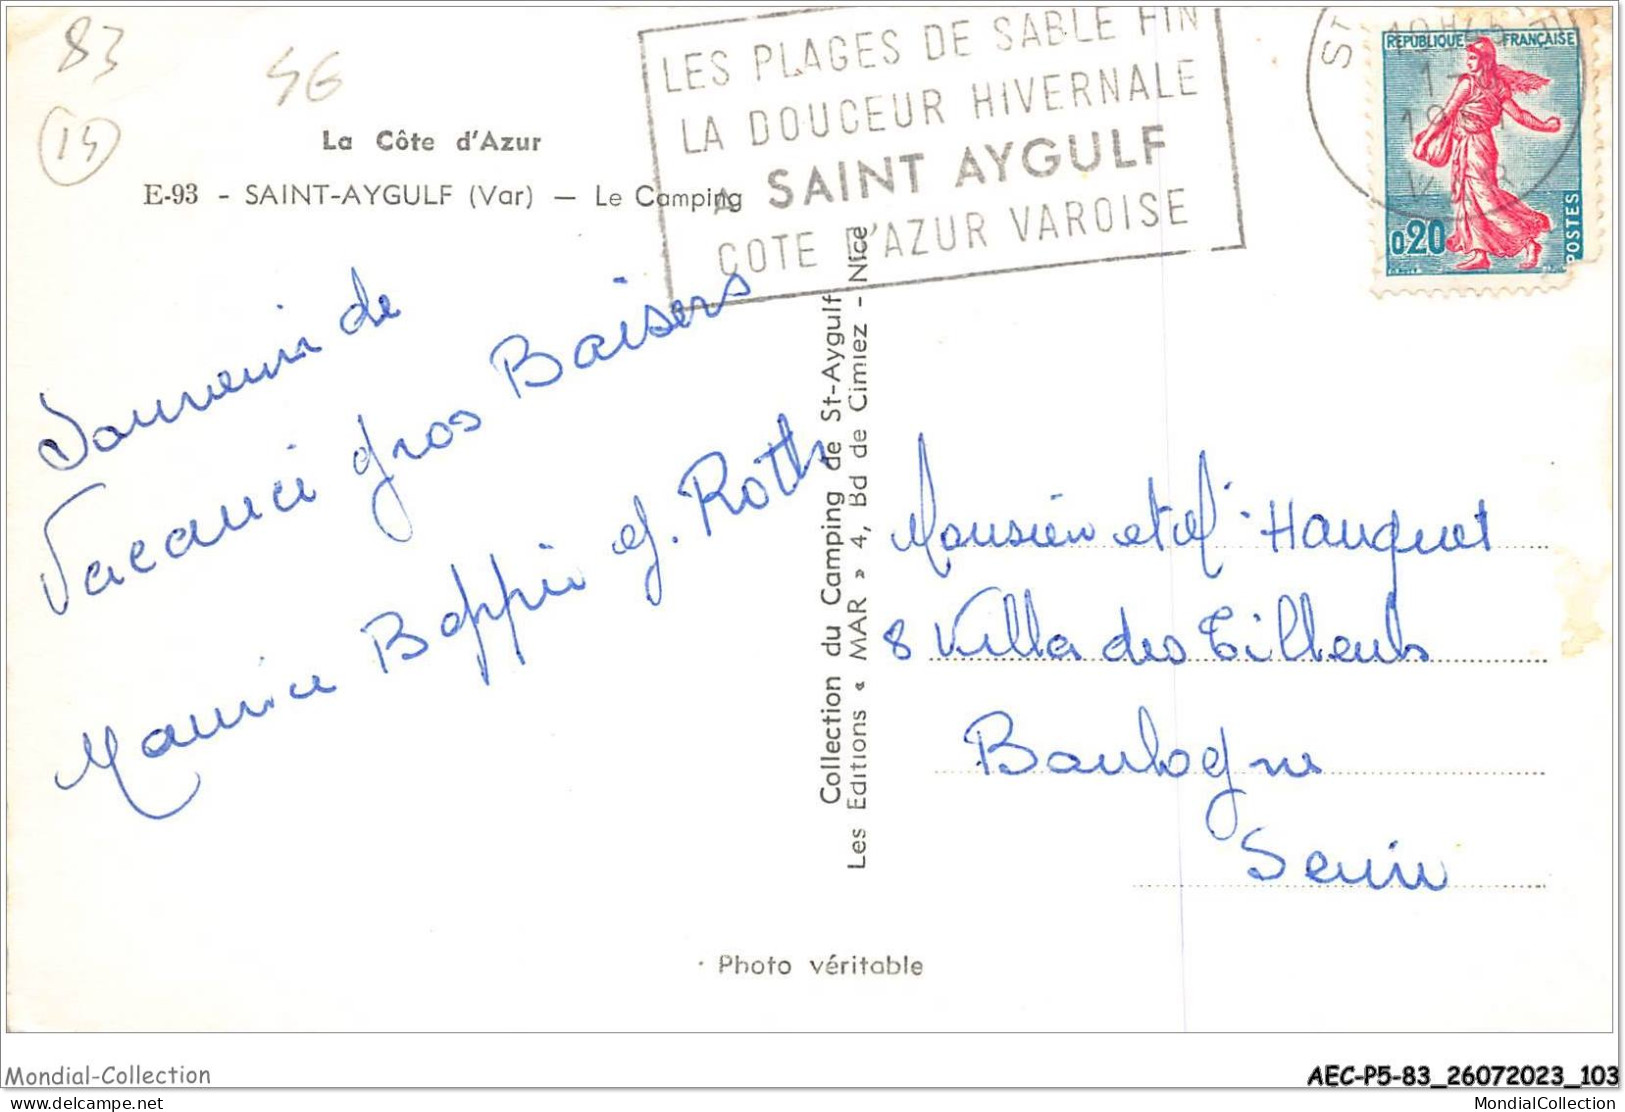 83
SG
15
La Côte d'Azur
E-93 - SAINT-AYGULF (Var) — Le Camping
LES PLAGES DE SABLE FIN
LA DOUCEUR HIVERNALE
A SAINT AYGULF
COTE D'AZUR VAROISE
REPUBLIQUE FRANÇAISE
0,20
POSTES
Souvenir de
Vacance gros Baisers
Maurice Beppie J. Roth
Collection du Camping de St-Aygulf
Les Editions « MAR » 4, Bd de Cimiez - Nice
Monsieur et M Hauquet
8 Villa des Tilleuls
Boulogne
Seine
Photo véritable
Mondial-Collection
AEC-P5-83_26072023_103
delcampe.net
MondialCollection